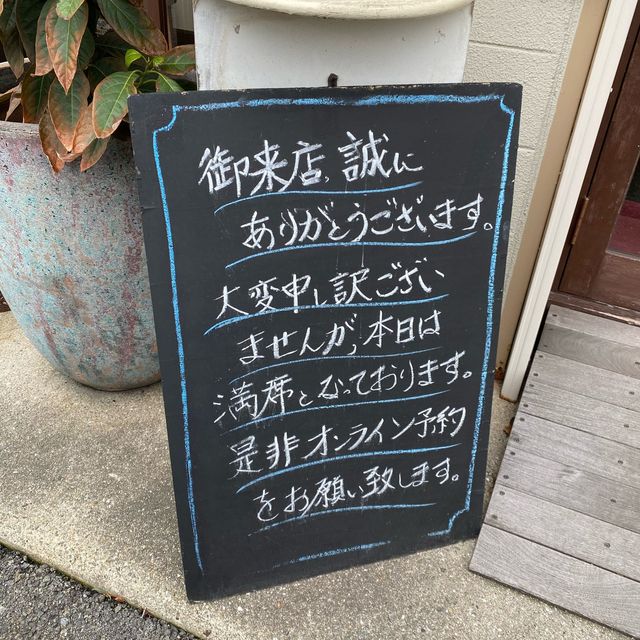 御来店、誠に
ありがとうございます。
大変申し訳ござい
ませんが、本日は
満席となっております。
是非オンライン予約
をお願い致します。